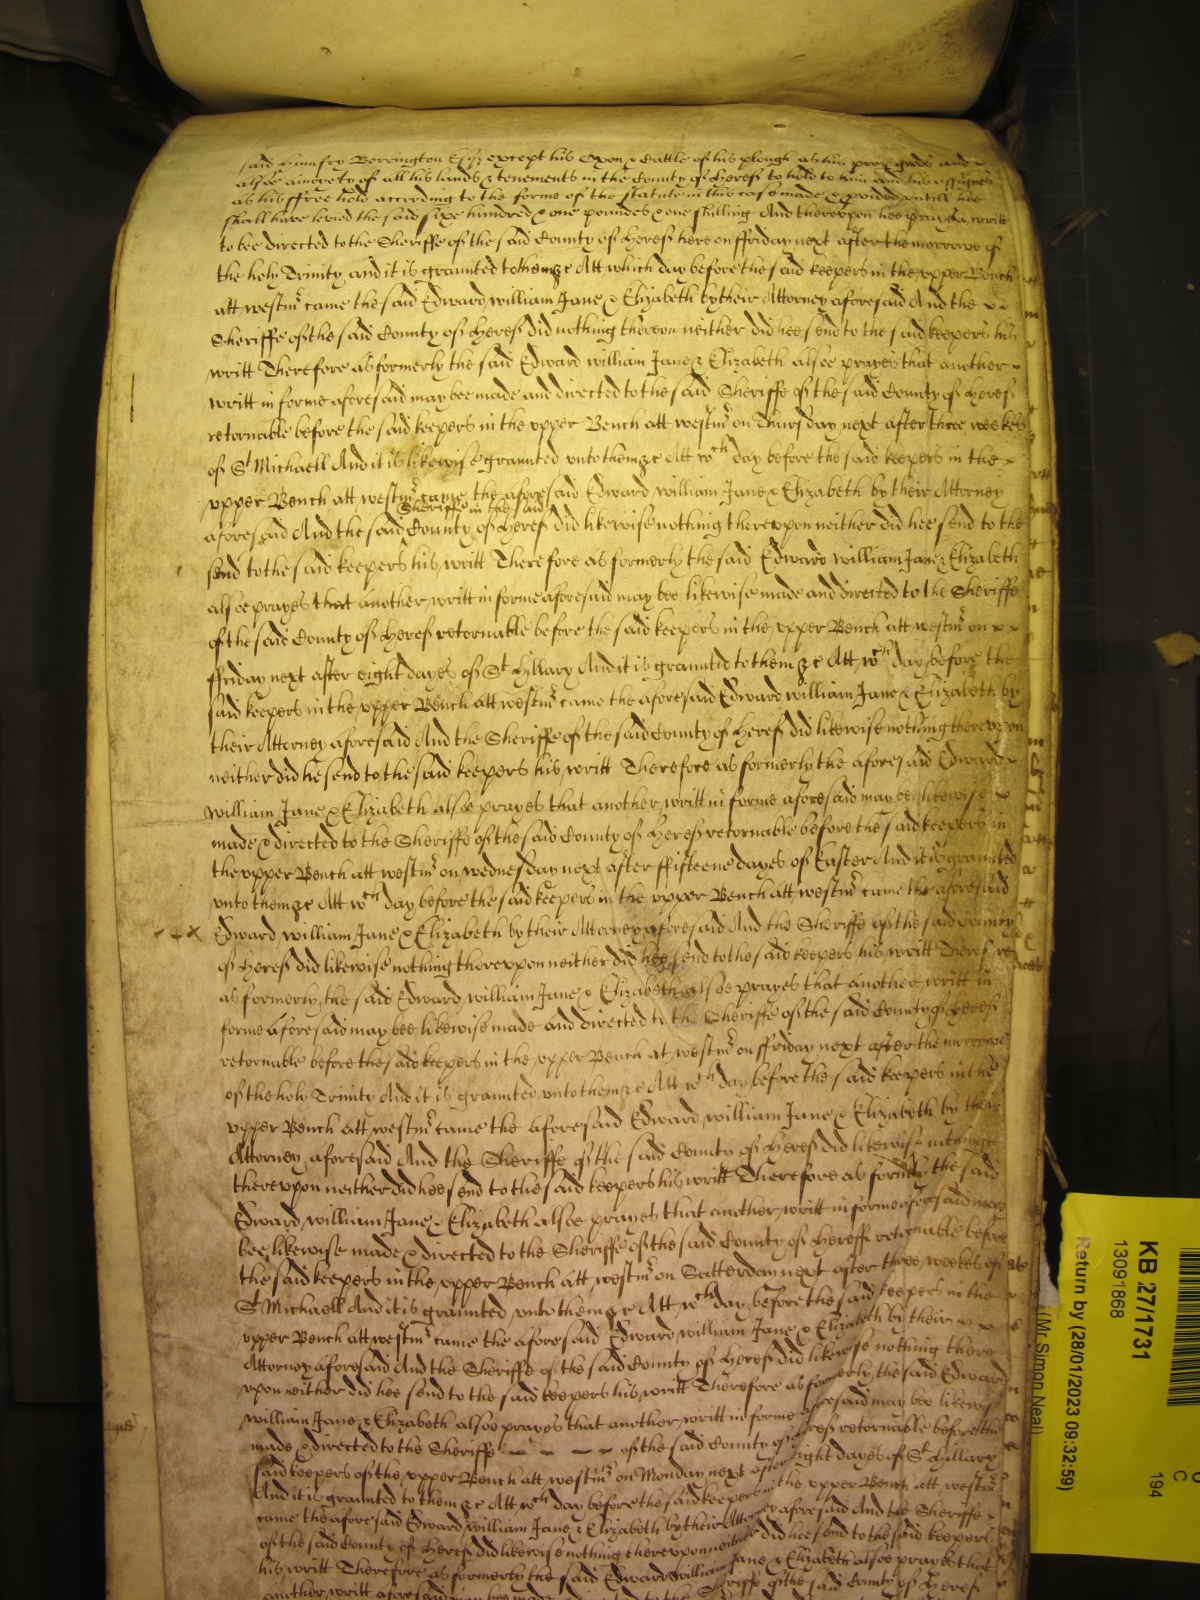 said Humfry Berrington Esqz except his Oxon & Cattle of his plough as his proper goods and
alsoe a moyety of all his lands & tenements in the County of Heref to hold to him and his assignes
as his ffree hold according to the forme of the statute in this case made & provided untill hee
shall have levied the said sixe hundred & one poundes & one shilling And thereupon hee prays a writt
to bee directed to the Sheriffe of the said County of Heref here on ffriday next after the morrowe of
the holy Trinity and it is graunted to them &c Att which day before the said keepers in the upper Bench
att westmr came the said Edward william Jane & Elizabeth by their Attorney aforesaid And the
Sheriffe of the said County of Heref did nothing thereon neither did hee send to the said keepers his
writt Therefore as formerly the said Edward william Jane & Elizabeth alsoe prayes that another
writt in forme aforesaid may bee made and directed to the said Sheriffe of the said County of Heref
retornable before the said keepers in the upper Bench att westmr on Thursday next after three weekes
of St Michaell And it is likewise graunted unto them &c Att wch day before the said keepers in the
upper Bench att westmr came the aforesaid Edward william Jane & Elizabeth by their Attorney
Sheriffe in the said
aforesaid And the said County of Heref did likewise nothing thereupon neither did hee send to the
send to the said keepers his writt Therefore as formerly the said Edward william Jane & Elizabeth
alsoe prayes that another writt in forme aforesaid may bee likewise made and directed to the Sheriffe
of the said County of Heref retornable before the said keepers in the upper Bench att westmr on
ffriday next after eight dayes of St Hillary And it is graunted to them &c Att wch day before the
said keepers in the upper Bench att westmr came the aforesaid Edward william Jane & Elizabeth by
their Attorney aforesaid And the Sheriffe of the said County of Heref did likewise nothing thereupon
neither did he send to the said keepers his writt Therefore as formerly the aforesaid Edward
william Jane & Elizabeth alsoe prayes that another writt in forme aforesaid may bee likewise
made & directed to the Sheriffe of the said County of Heref retornable before the said keepers in
the upper Bench att westmr on wednesday next after ffifteene dayes of Easter And it is graunted
unto them &c Att wch day before the said keepers in the upper Bench att westmr came the aforesaid
Edward william Jane & Elizabeth by their Attorney aforesaid And the Sheriffe of the said County
of Heref did likewise nothing thereupon neither did hee send to the said keepers his writt Therefore
as formerly the said Edward william Jane & Elizabeth alsoe prayes that another writt in
forme aforesaid may bee likewise made and directed to the Sheriffe of the said County of Heref
retornable before the said keepers in the upper Bench at westmr on ffriday next after the morrowe
of the holy Trinity And it is graunted unto them &c Att wch day before the said keepers in the
upper Bench att westmr came the aforesaid Edward william Jane & Elizabeth by their
Attorney aforesaid And the Sheriffe of the said County of Heref did likewise nothinge
thereupon neither did hee send to the said keepers his writt Therefore as formerly the said
Edward william Jane & Elizabeth alsoe prayes that another writt in forme aforesaid may
bee likewise made & directed to the Sheriffe of the said County of Hereff retornable before
the said keepers in the upper Bench att westmr on Satterday next after three weekes of
St Michaell And it is graunted unto them &c Att wch day before the said keepers in the
upper Bench att westmr came the aforesaid Edward william Jane & Elizabeth by their
Attorney aforesaid And the Sheriffe of the said County of Heref did likewise nothing there
upon neither did hee send to the said keepers his writt Therefore as formerly the said Edward
william Jane & Elizabeth alsoe prayes that another writt in forme aforesaid may bee likewise
made & directed to the Sheriffe of the said County of Heref retornable before the
said keepers of the upper Bench att westmr on Monday next after eight dayes of St Hillary
And it is graunted to them &c Att wch day before the said keepers in the upper Bench att westmr
came the aforesaid Edward william Jane & Elizabeth by their Attorney aforesaid And the Sheriffe
of the said County of Heref did likewise nothing thereupon neither did hee send to the said keepers
his writt Therefore as formerly the said Edward william Jane & Elizabeth alsoe prayes that
another writt aforesaid may bee made directed to the Sheriffe of the said County of Heref
KB 27/1731
13091868
Return by (28/01/2023 09:32:59)
(Mr Simon Neal)
194
C